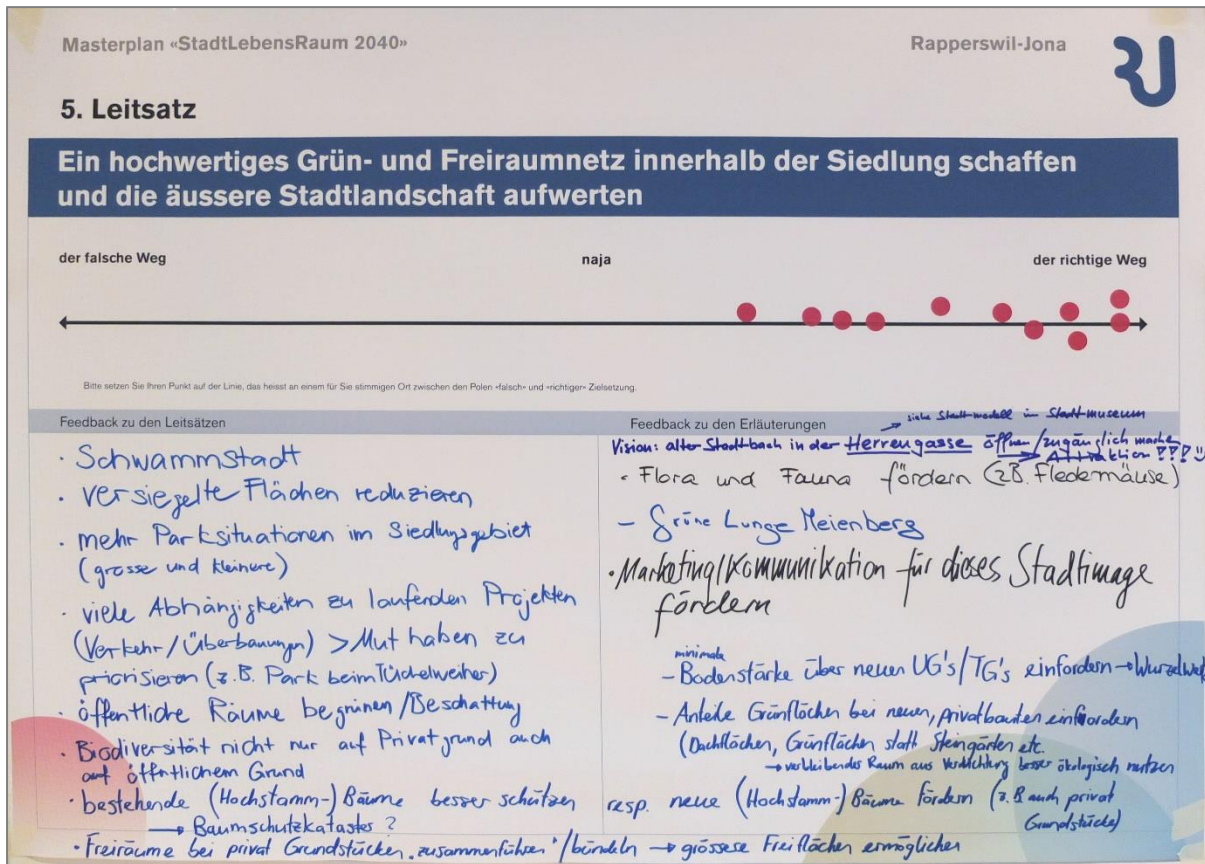 Masterplan «StadtLebensRaum 2040»
Rapperswil-Jona
5. Leitsatz
Ein hochwertiges Grün- und Freiraumnetz innerhalb der Siedlung schaffen
und die äussere Stadtlandschaft aufwerten
der falsche Weg
naja
der richtige Weg
Bitte setzen Sie Ihren Punkt auf der Linie, das heisst an einem für Sie stimmigen Ort zwischen den Polen «falsch» und «richtiger» Zielsetzung.
Feedback zu den Leitsätzen
· Schwammstadt
· versiegelte Flächen reduzieren
· mehr Parksituationen im Siedlungsgebiet
(grosse und kleinere)
· viele Abhängigkeiten zu laufenden Projekten
(Verkehr/Überbauungen) > Mut haben zu
priorisieren (z.B. Park beim Tüchelweiher)
· öffentliche Räume begrünen/Beschattung
· Biodiversität nicht nur auf Privatgrund auch
auf öffentlichem Grund
· bestehende (Hochstamm-) Bäume besser schützen resp. neue (Hochstamm-) Bäume fördern (z.B auch privat
Grundstücke)
→ Baumschutzkataster?
· Freiräume bei privat Grundstücken "zusammenführen"/bündeln → grössere Freiflächen ermöglichen
Feedback zu den Erläuterungen
→ siehe Stadtmodell in Stadtmuseum
Vision: alter Stadtbach in der Herrengasse öffnen/zugänglich machen
→ Attraktion ???!
· Flora und Fauna fördern (z.B. Fledermäuse)
- Grüne Lunge Meienberg
· Marketing/Kommunikation für dieses Stadtimage
fördern
minimale
- Bodenstärke über neuen UG's/TG's einfordern → Wurzelwerk
- Anteile Grünflächen bei neuen, privatbauten einfordern
(Dachflächen, Grünflächen statt Steingärten etc.
→ verbleibender Raum aus Verdichtung besser ökologisch nutzen